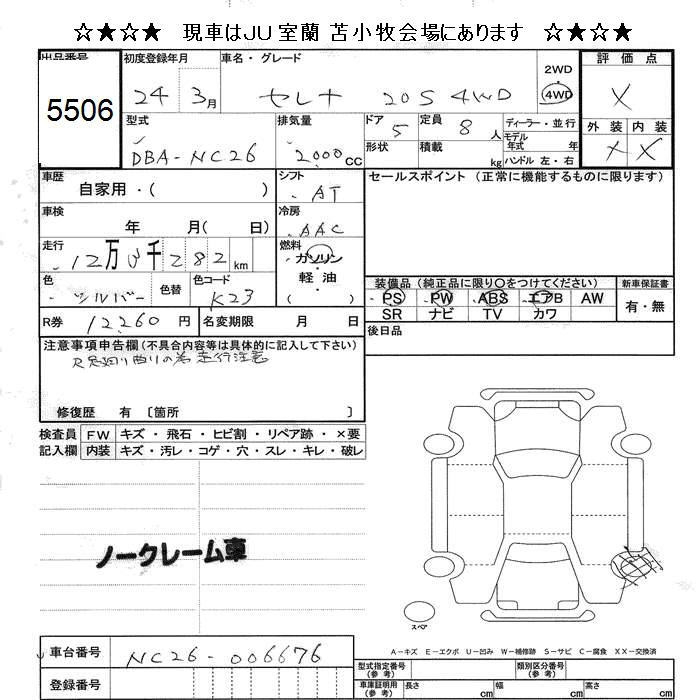 ☆★☆★ 現車はJU室蘭 苫小牧会場にあります ☆★☆★
出品番号
5506
初度登録年月
24 3月
車名・グレード
セレナ 20S 4WD
2WD
4WD
評価点
X
外装 内装
X X
型式
DBA-NC26
排気量
2000CC
ドア
5
形状
定員
8人
積載
kg
ディーラー・並行
モデル
年式 年
ハンドル 左・右
車歴
自家用・( )
シフト
AT
セールスポイント (正常に機能するものに限ります)
車検
年 月( 日)
冷房
AAC
走行
12万 千282km
燃料
ガソリン
・
軽油
( )
色
シルバー
色替
色コード
K23
装備品(純正品に限り〇をつけてください)
PS PW ABS エアB AW
SR ナビ TV カワ
新車保証書
有・無
R券 12260円
名変期限 月 日
後日品
注意事項申告欄(不具合内容等は具体的に記入して下さい)
走行注意
修復歴 有〔箇所 〕
検査員
記入欄
FW キズ・飛石・ヒビ割・リペア跡・×要
内装 キズ・汚レ・コゲ・穴・スレ・キレ・破レ
ノークレーム車
スペア
A-キズ E-エクボ U-凹み W-補修跡 S-サビ C-腐食 XX-交換済
車台番号 NC26-006676
登録番号
型式指定番号
(参考)
類別区分番号
(参考)
車庫証明用
(参考)
長さ cm 幅 cm 高さ cm